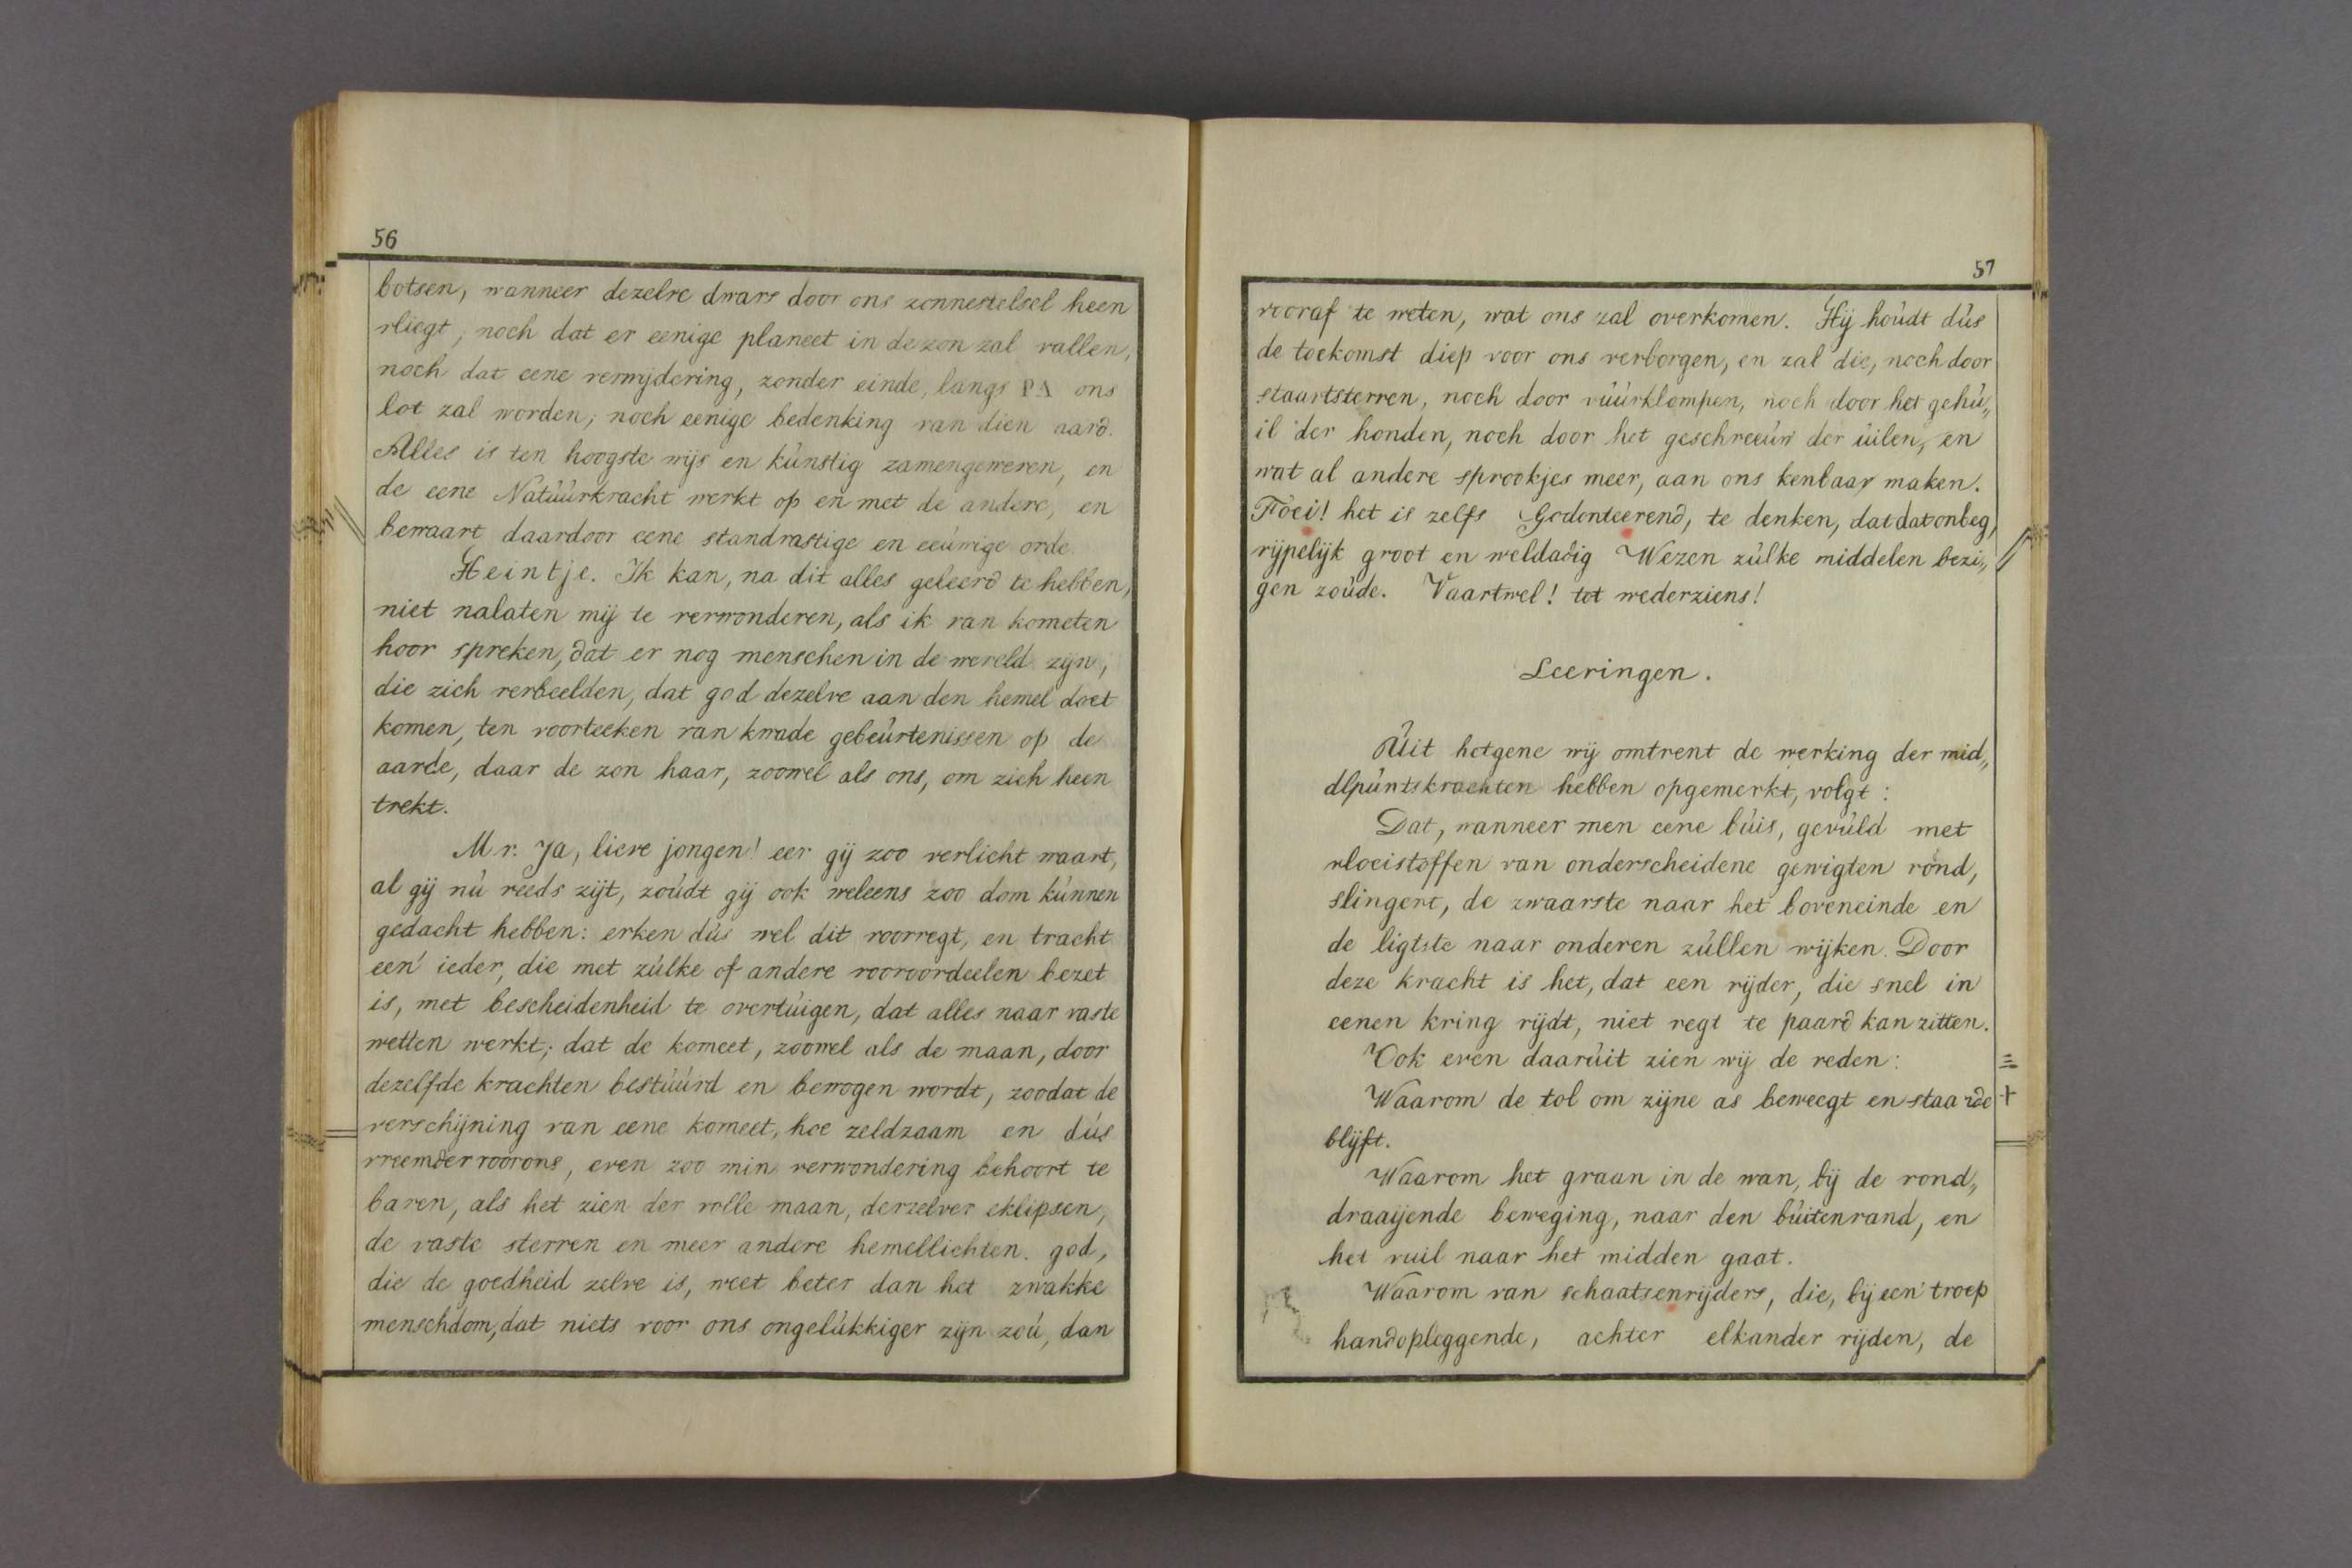 56
botsen, wanneer dezelve dwars door ons zonnestelsel heen
vliegt; noch dat er eenige planeet in de zon zal vallen,
noch dat eene verwijdering, zonder einde, langs PA ons
lot zal worden; noch eenige bedenking van dien aard.
Alles is ten hoogste wijs en kùnstig zamengeweven, en
de eene Natùùrkracht werkt op en met de andere, en
bewaart daardoor eene standvastige en eeùwige orde.
Heintje. Ik kan, na dit alles geleerd te hebben,
niet nalaten mij te verwonderen, als ik van kometen
hoor spreken, dat er nog menschen in de wereld zijn,
die zich verbeelden, dat god dezelve aan den hemel doet
komen, ten voorteeken van kwade gebeùrtenissen op de
aarde, daar de zon haar, zoowel als ons, om zich heen
trekt.
Mr. Ja, lieve jongen! eer gij zoo verlicht waart,
al gij nù reeds zijt, zoùdt gij ook weleens zoo dom kùnnen
gedacht hebben: erken dùs wel dit voorregt, en tracht
een' ieder, die met zùlke of andere vooroordeelen bezet
is, met bescheidenheid te overtùigen, dat alles naar vaste
wetten werkt; dat de komeet, zoowel als de maan, door
dezelfde krachten bestùùrd en bewogen wordt, zoodat de
verschijning van eene komeet, hoe zeldzaam en dùs
vreemder voor ons, even zoo min verwondering behoort te
baren, als het zien der volle maan, derzelver eklipsen,
de vaste sterren en meer andere hemellichten. god,
die de goedheid zelve is, weet beter dan het zwakke
menschdom, dat niets voor ons ongelùkkiger zijn zoù, dan
57
vooraf te weten, wat ons zal overkomen. Hij hoùdt dùs
de toekomst diep voor ons verborgen, en zal die, noch door
staartsterren, noch door vùùrklompen, noch door het gehù„
il der honden, noch door het geschreeùw der ùilen, en
wat al andere sprookjes meer, aan ons kenbaar maken.
Foei! het is zelfs Godonteerend, te denken, dat dat onbeg„
rijpelijk groot en weldadig Wezen zùlke middelen bezi„
gen zoùde. Vaartwel! tot wederziens!
Leeringen.
Ùit hetgene wij omtrent de werking der mid„
dlpùntskrachten hebben opgemerkt, volgt:
Dat, wanneer men eene bùis, gevùld met
vloeistoffen van onderscheidene gewigten rond,
slingert, de zwaarste naar het boveneinde en
de ligtste naar onderen zùllen wijken. Door
deze kracht is het, dat een rijder, die snel in
eenen kring rijdt, niet regt te paard kan zitten.
Ook even daarùit zien wij de reden:
Waarom de tol om zijne as beweegt en staande
blijft.
Waarom het graan in de wan, bij de rond„
draaijende beweging, naar den bùitenrand, en
het vuil naar het midden gaat.
Waarom van schaatsenrijders, die, bij een' troep
handopleggende, achter elkander rijden, de